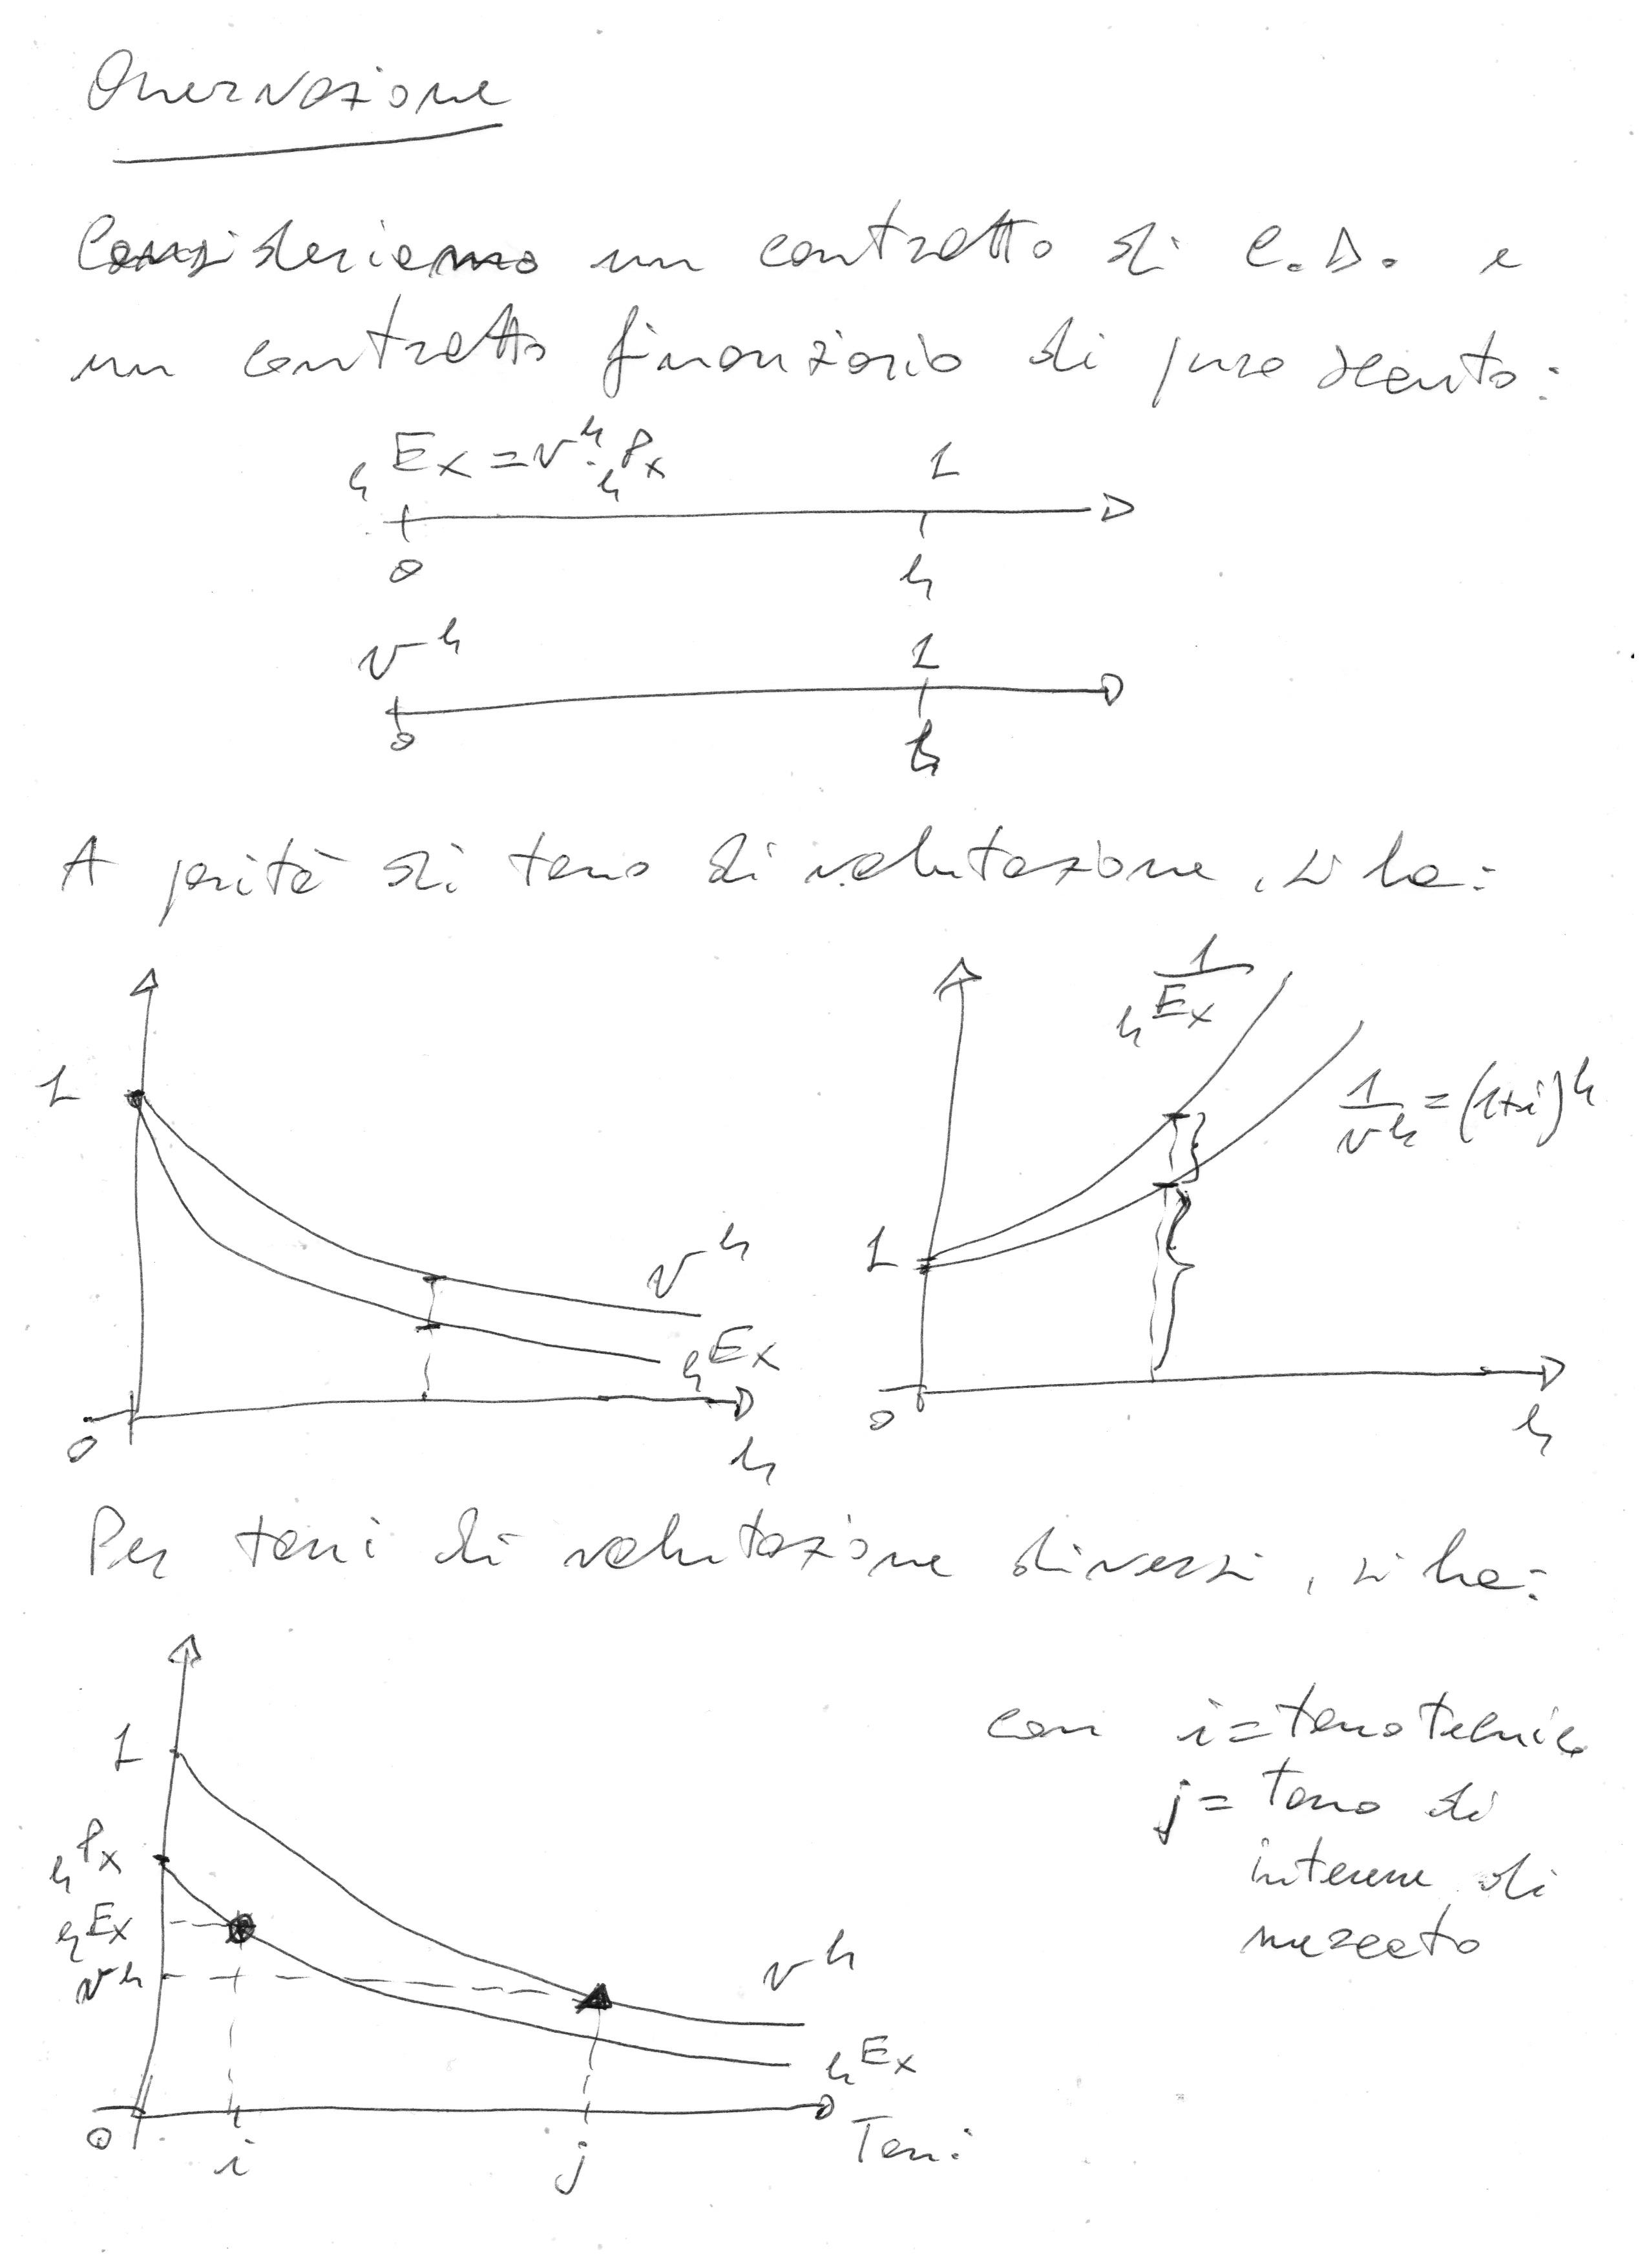 Osservazione
Consideriamo un contratto di C.D. e
un contratto finanziario di puro sconto:
hEx = v^h · hPx 1
0 h
v^h 1
0 h
A parità di tasso di valutazione, si ha:
1 v^h hEx 0 h
1/hEx 1/v^h = (1+i)^h 1 0 h
Per tassi di valutazione diversi, si ha:
1 hPx hEx v^h v^h hEx 0 i j Tassi
con i = tasso tecnico
j = tasso di
interesse di
mercato